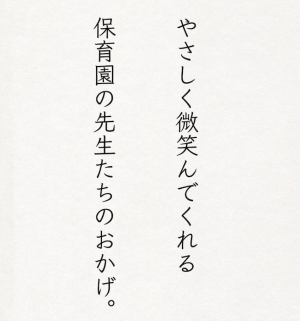 やさしく微笑んでくれる
保育園の先生たちのおかげ。